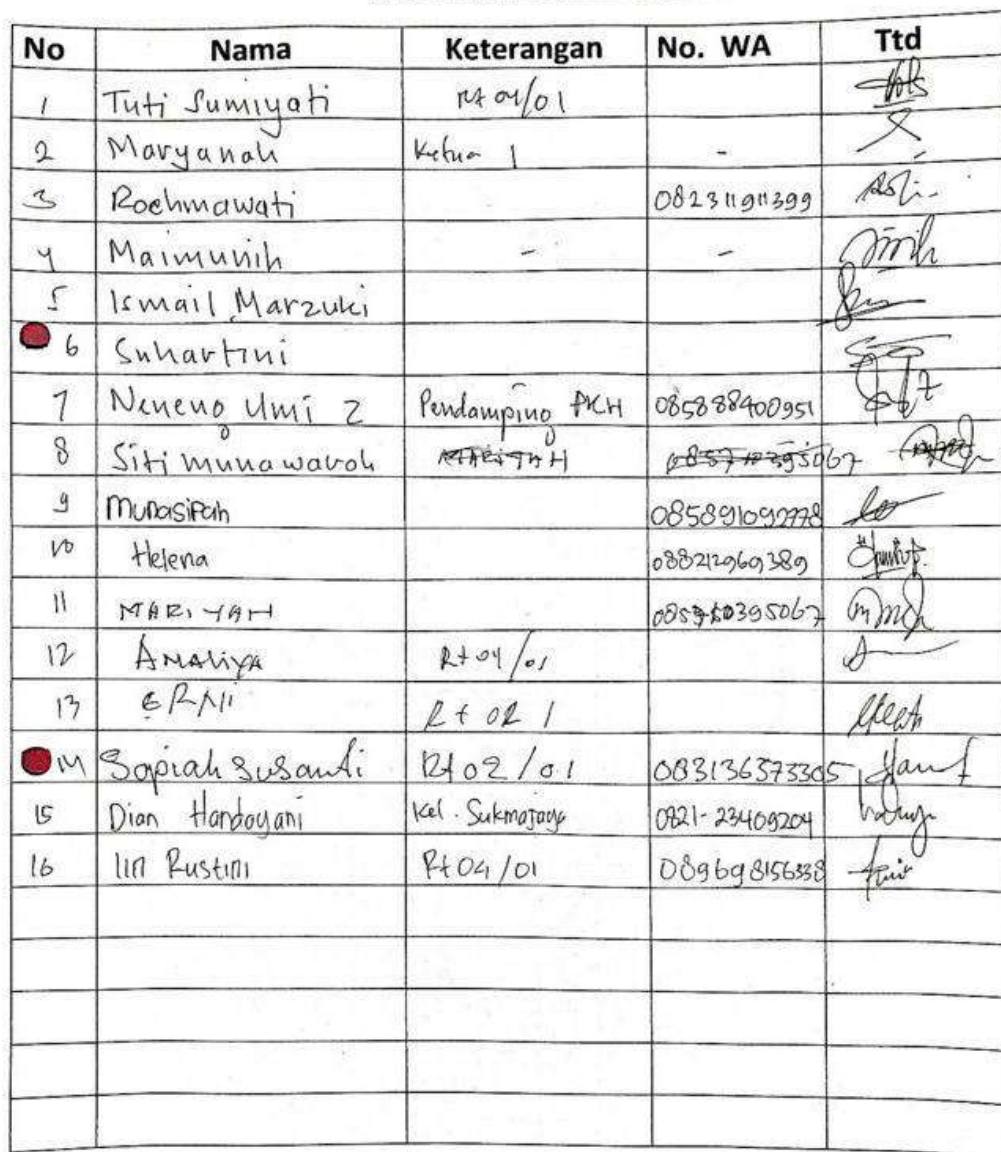 No Nama Keterangan No. WA Ttd
1 Tuti Sumiyati Rt 04/01
2 Maryanah Ketua 1 -
3 Rochmawati 082311911399
4 Maimunih - -
5 Ismail Marzuki
6 Suhartini
7 Neneng Umi Z Pendamping PKH 085888400951
8 Siti munawaroh
9 Munasifah 085891092778
10 Helena 088212969389
11 MARIYAH
12 AMALIYA Rt 04/01
13 ERNI Rt 02 1
14 Sapiah Susanti Rt 02/01 083136573305
15 Dian Handayani Kel. Sukmajaya 0821-23409204
16 Iin Rustini Rt 04/01 089698156338